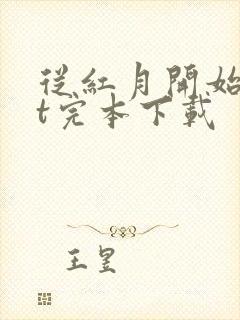 從紅月開始
t完本下載
王昱